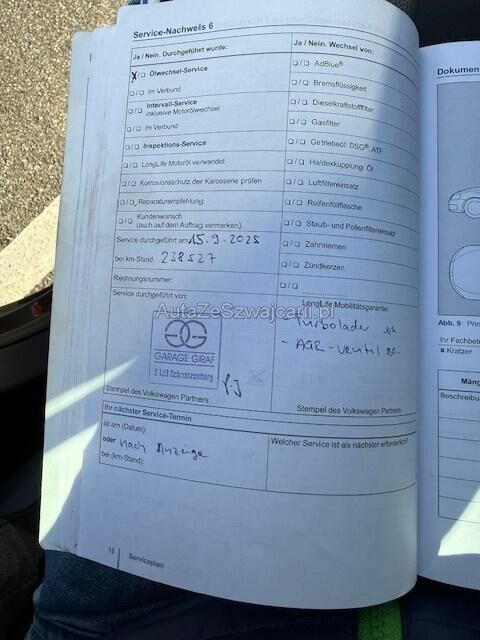 Service-Nachweis 6
Ja / Nein. Durchgeführt wurde:
X/☐ Ölwechsel-Service
☐/☐ im Verbund
☐/☐ Intervall-Service
inklusive Motorölwechsel
☐/☐ im Verbund
☐/☐ Inspektions-Service
☐/☐ LongLife Motoröl verwendet
☐/☐ Korrosionsschutz der Karosserie prüfen
☐/☐ Reparaturempfehlung
☐/☐ Kundenwunsch
(auch auf dem Auftrag vermerken)
Service durchgeführt am: 15.9.2025
bei km-Stand: 238527
Rechnungsnummer:
Service durchgeführt von:
GARAGE GRAF
Schwarzenberg
Stempel des Volkswagen Partners
Ja / Nein. Wechsel von:
☐/☐ AdBlue®
☐/☐ Bremsflüssigkeit
☐/☐ Dieselkraftstofffilter
☐/☐ Gasfilter
☐/☐ Getriebeöl: DSG®, ATF
☐/☐ Haldexkupplung: Öl
☐/☐ Luftfiltereinsatz
☐/☐ Reifenfüllflasche
☐/☐ Staub- und Pollenfiltereinsatz
☐/☐ Zahnriemen
☐/☐ Zündkerzen
☐/☐ ....................
LongLife Mobilitätsgarantie:
- Turbolader
- AGR-Ventil
Stempel des Volkswagen Partners
Ihr nächster Service-Termin
ist am (Datum):
oder nach Anzeige
bei (km-Stand):
Welcher Service ist als nächster erforderlich?
16 Serviceplan
AutaZeSzwajcarii.pl
Dokumen
Abb. 9 Prin
Ihr Fachbetri
x Kratzer
Mäng
Beschreibu